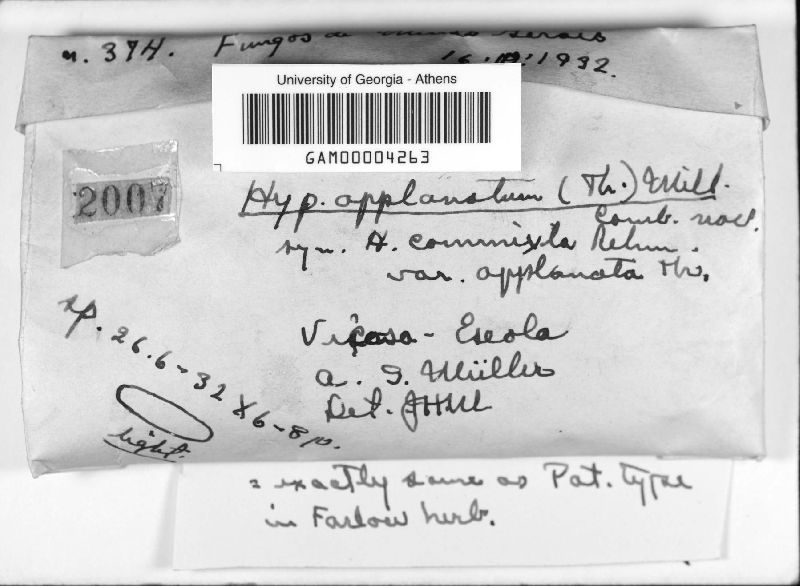 n. 374. Fungos de Minas Geraes
1932.
University of Georgia - Athens
GAM00004263
2007
Hyp. applanatum (Th.) Mill.
Comb. nov.
syn. H. commixta Rehm.
var. applanata Th.
Viçosa - Escola
A. S. Müller
Det. JHM
sp. 26.6 - 32 X 6 - 8 µ.
light.
= exactly same as Pat. type
in Farlow herb.